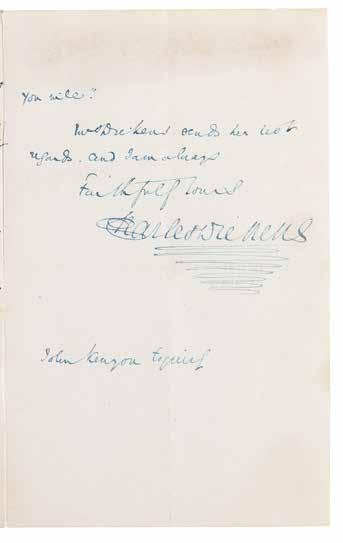 You will?
Mrs Dickens sends her best
regards, and I am always
Faithfully Yours
Charles Dickens
John Kenyon Esquire